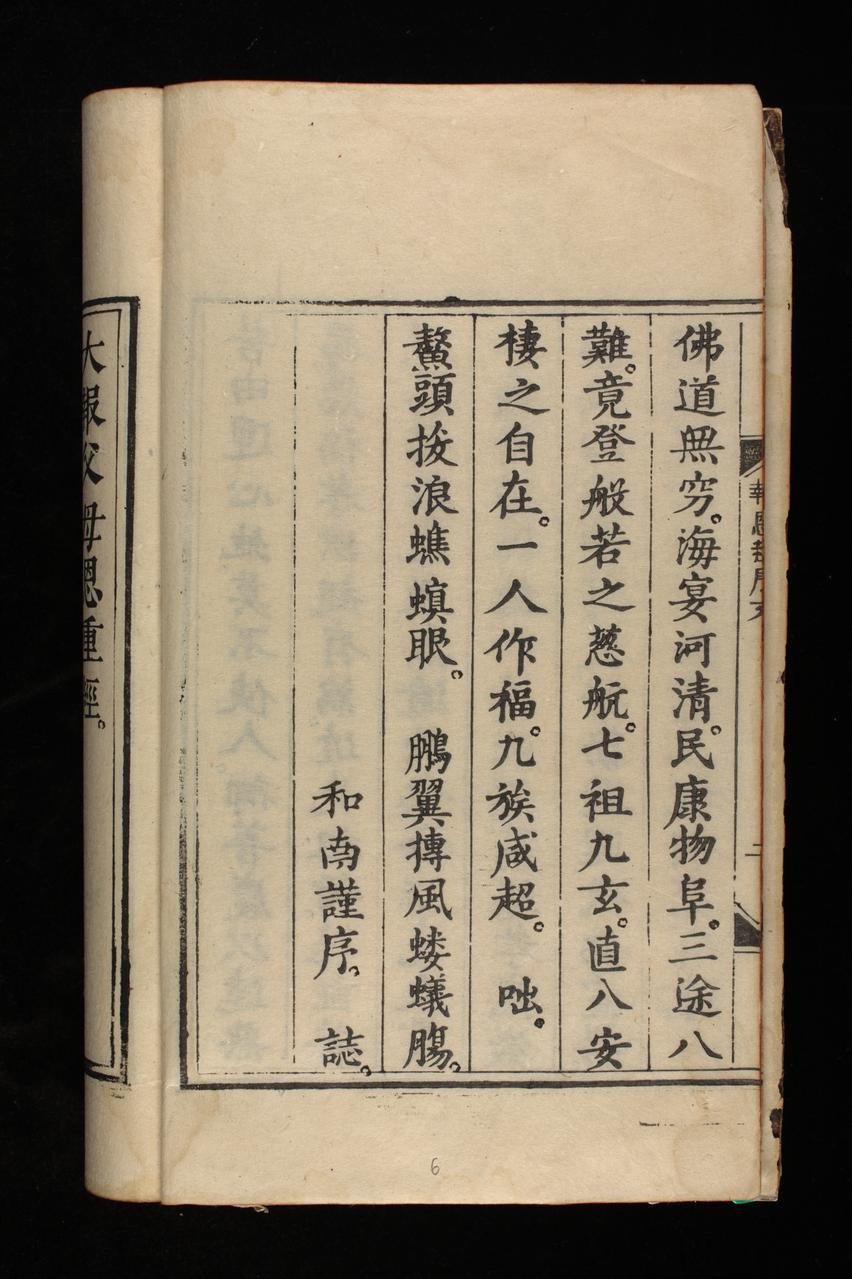 報恩經序文
二
佛道無穷。海宴河清。民康物阜。三途八
難。竟登般若之慈航。七祖九玄。直八安
棲之自在。一人作福。九族咸超。 咄。
鰲頭拔浪蟭螟眼。 鵬翼摶風螻蟻腸。
和南謹序。 誌。
大報父母恩重經。
6